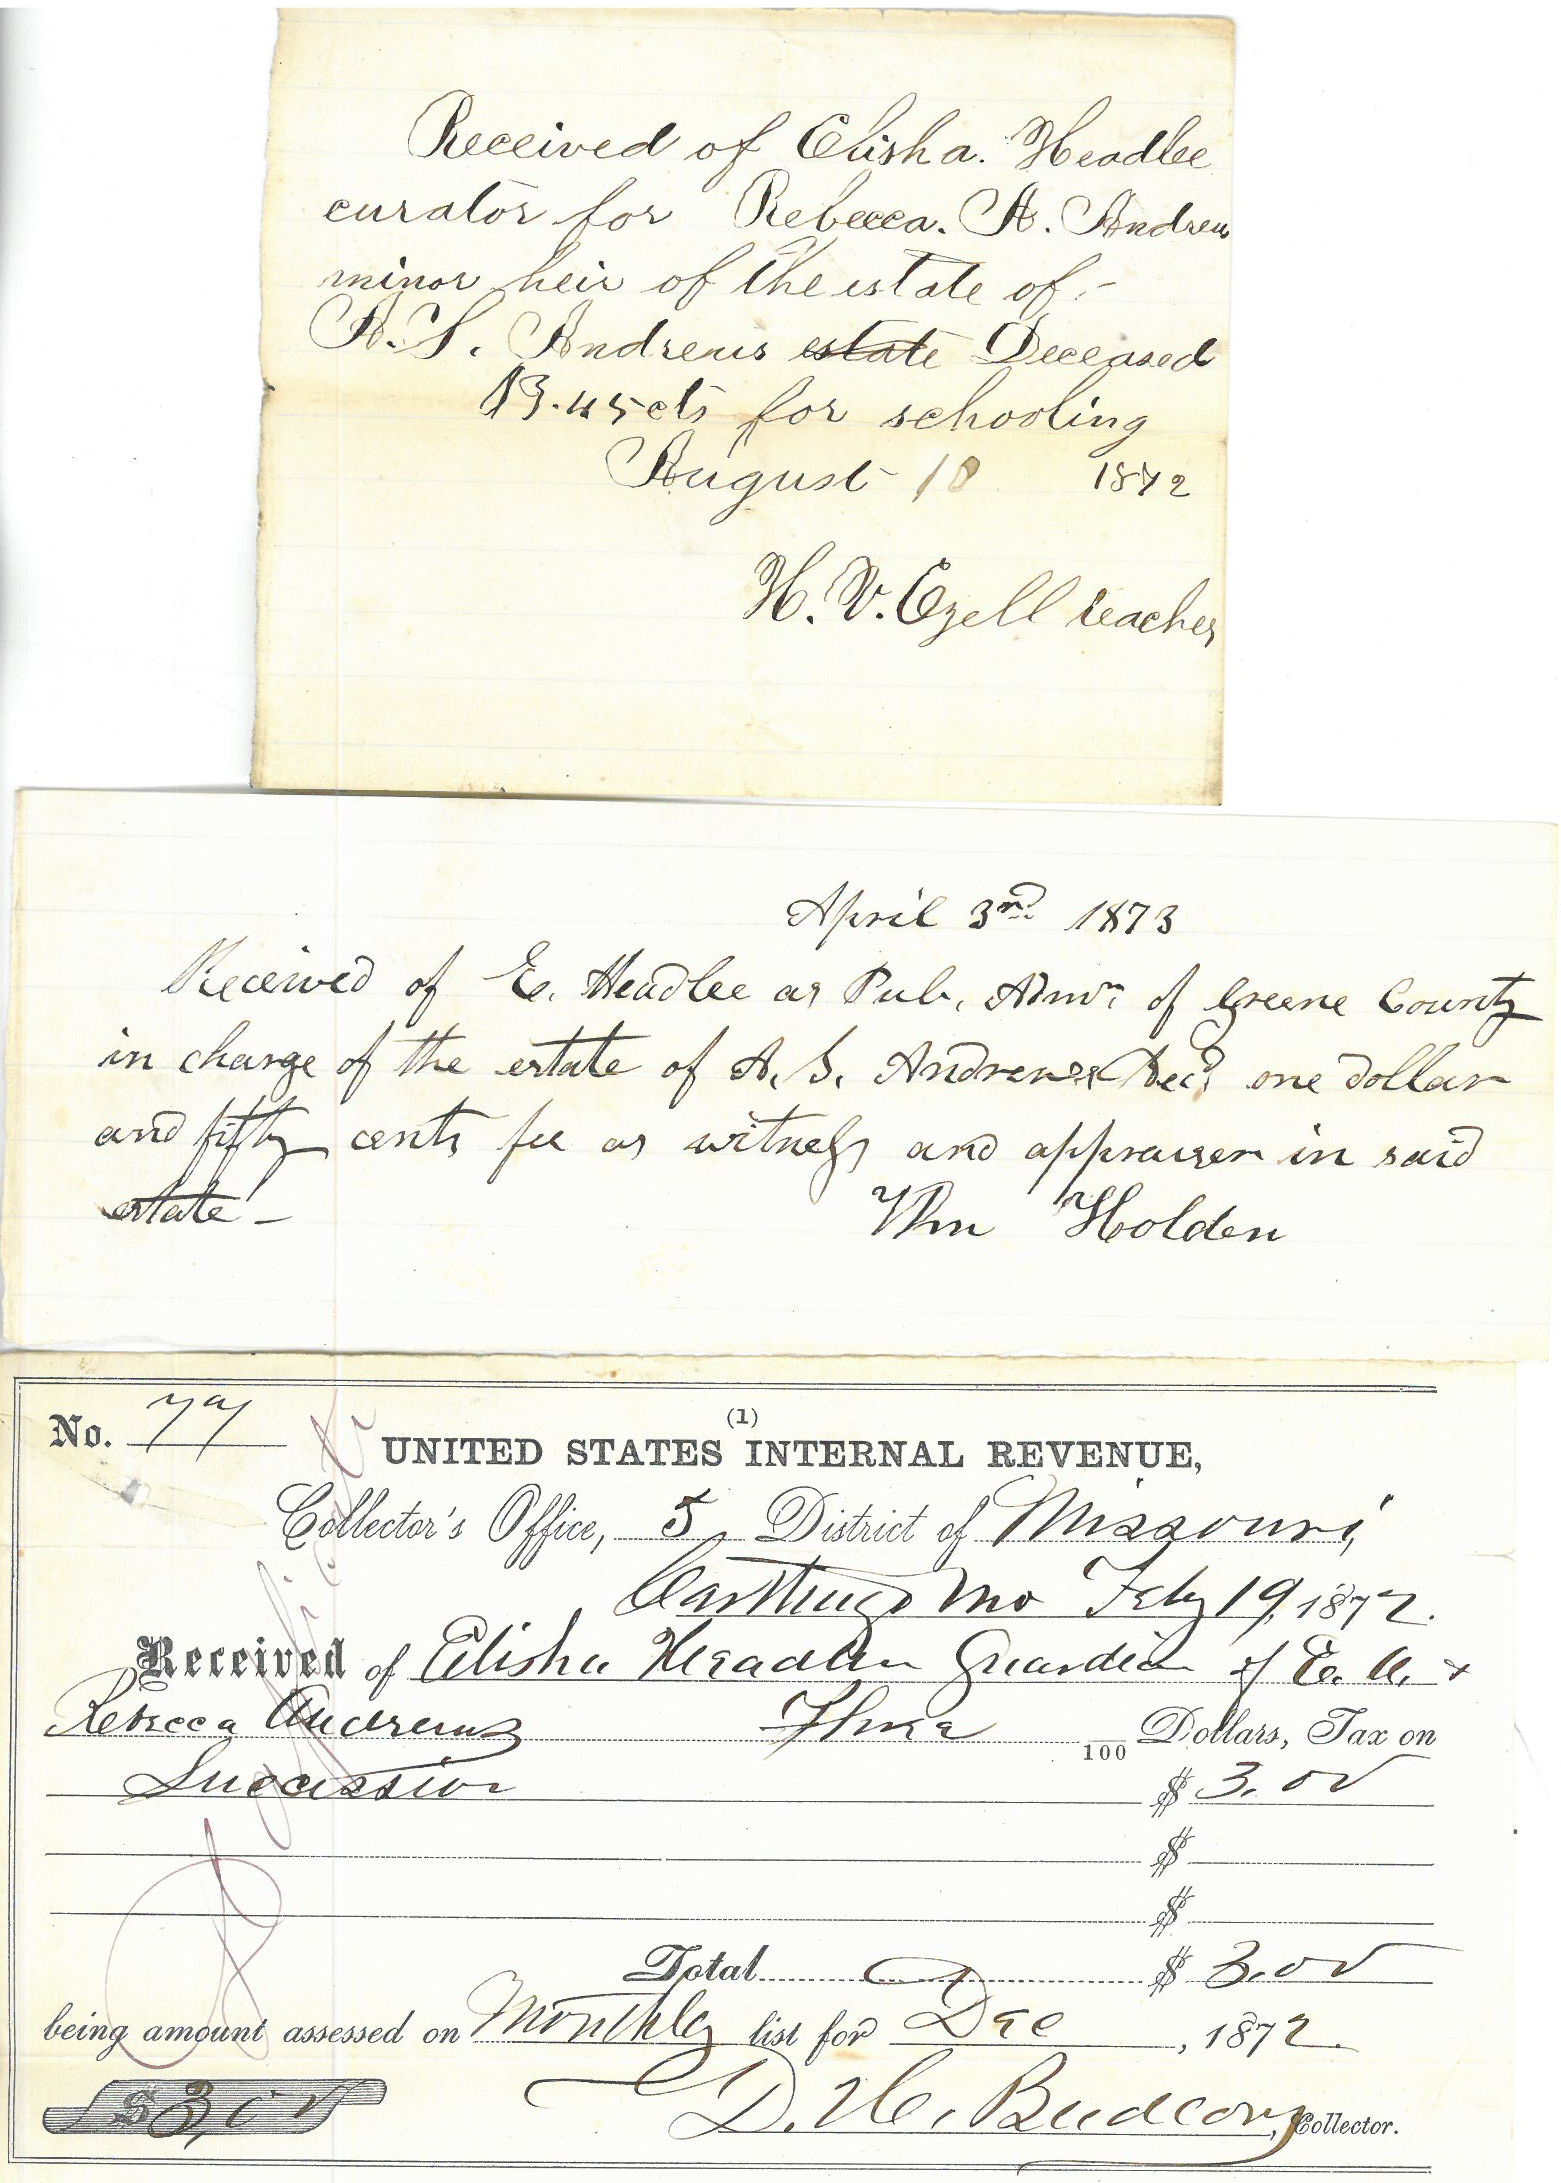 Received of Elisha. Headlee
curator for Rebecca. A. Andrews
minor heir of the estate of :-
A. S. Andrews estate Deceased
$3.45 cts for schooling
August 10 1872
H. V. Ezell teacher
April 3rd 1873
Received of E. Headlee as Pub. Admr. of Greene County
in charge of the estate of A. S. Andrews Decd one dollar
and fifty cents fee as witness and appraiser in said
estate –
Wm Holden
No. 77
(1)
UNITED STATES INTERNAL REVENUE,
Collector's Office, 5 District of Missouri,
Carthage Mo Feby 19, 1872.
Received of Elisha Headlee Guardian of E. A. &
Rebecca Andrews Three /100 Dollars, Tax on
Succession $ 3.00
$
$
Total $ 3.00
being amount assessed on Monthly list for Dec, 1872.
$3.00
D. H. Collector.
Duplicate